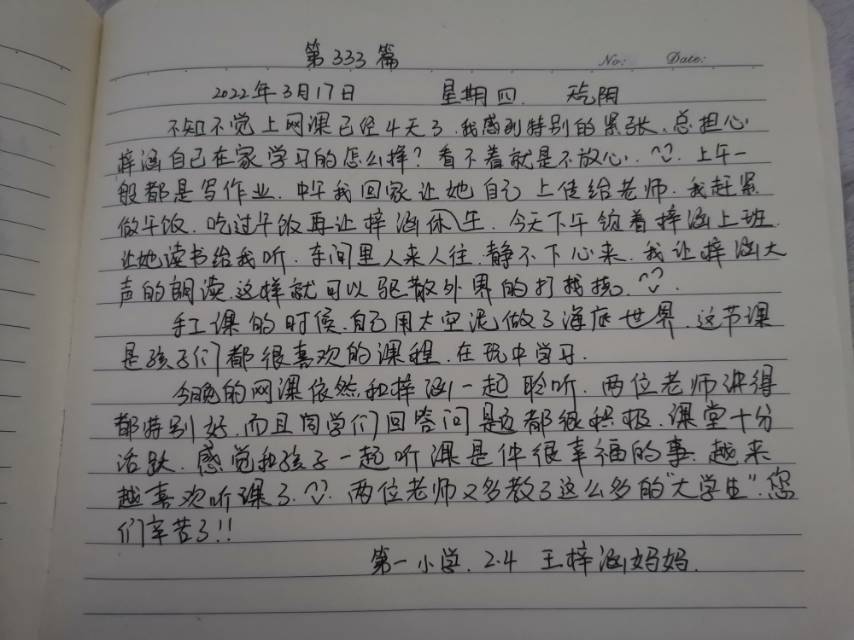 第333篇
No: Date:
2022年3月17日 星期四 晴阴
不知不觉上网课已经4天了.我感到特别的紧张.总担心
梓涵自己在家学习的怎么样?看不着就是不放心.^◡^.上午一
般都是写作业.中午我回家让她自己上传给老师.我赶紧
做午饭.吃过午饭再让梓涵休息.今天下午领着梓涵上班.
让她读书给我听.车间里人来人往.静不下心来.我让梓涵大
声的朗读.这样就可以驱散外界的打扰.^◡^.
手工课的时候.自己用太空泥做了海底世界.这节课
是孩子们都很喜欢的课程.在玩中学习.
今晚的网课依然和梓涵一起聆听.两位老师讲得
都特别好.而且同学们回答问题都很积极.课堂十分
活跃.感觉和孩子一起听课是件很幸福的事.越来
越喜欢听课了.^◡^.两位老师又多教了这么多的“大学生”.您
们辛苦了!!
第一小学.2.4 王梓涵妈妈.